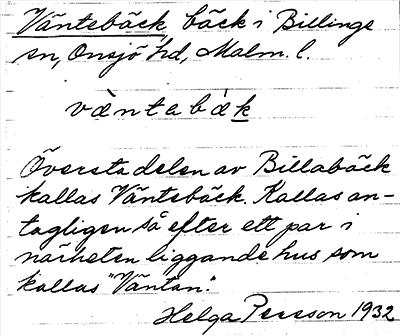 Väntebäck, bäck i Billinge
sn, Onsjö hd, Malm. l.
vä̀ntabä̀k
Översta delen av Billabäck
kallas Väntebäck. Kallas an-
tagligen så efter ett par i
närheten liggande hus som
kallas "Väntan".
Helga Persson 1932